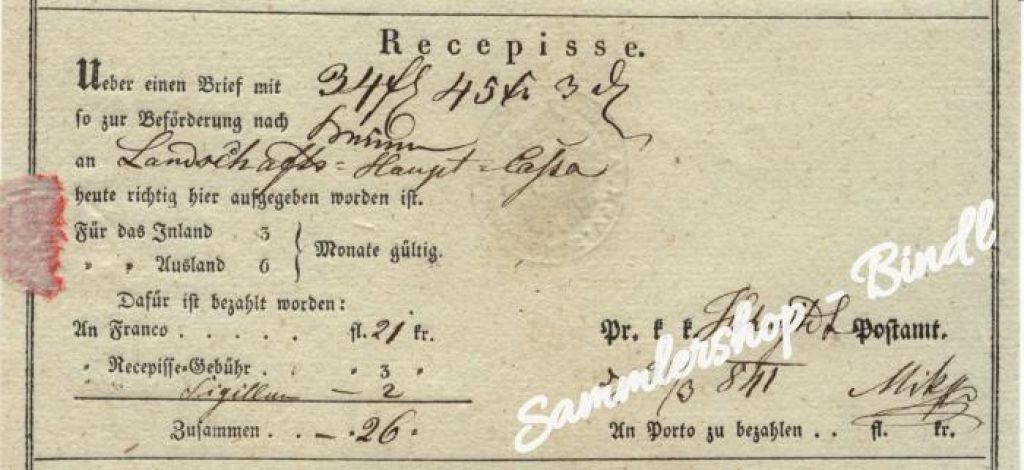 Recepisse.
Ueber einen Brief mit 34 fl 45 kr 3 d
so zur Beförderung nach Brünn
an Landschafts-Haupt-Cassa
heute richtig hier aufgegeben worden ist.
Für das Inland 3
" " Ausland 6
Monate gültig.
Dafür ist bezahlt worden:
An Franco . . . . . fl. 21 kr.
" Recepisse-Gebühr . " 3 "
Sigillum — 2
Zusammen . . — . 26 .
Pr. k. k. Postamt.
841
An Porto zu bezahlen . . fl. kr.
Sammlershop - Bindl